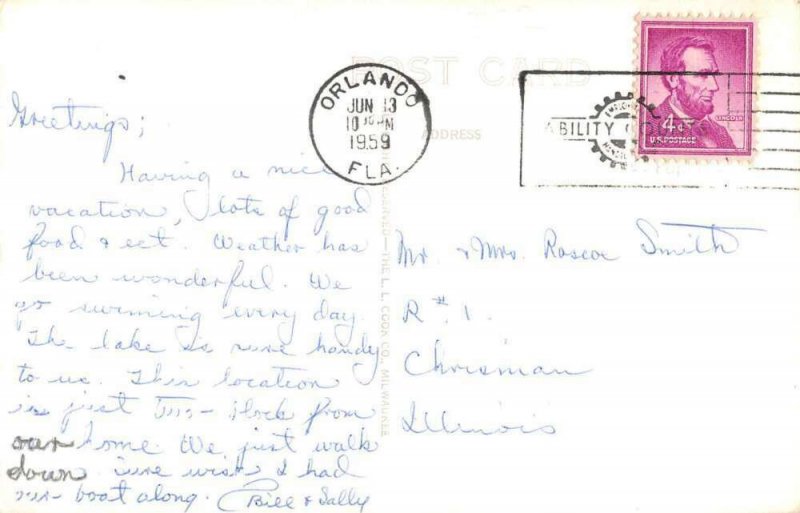 POST CARD
ADDRESS
ORLANDO
JUN 13
10 PM
1959
FLA.
ABILITY COUNTS
LINCOLN
4¢
U.S. POSTAGE
Greetings;
Having a nice
vacation, lots of good
food & ect. Weather has
been wonderful. We
go swimming every day.
The lake is handy
to us. This location
is just block from
our home. We just walk
down. wish I had
boat along. Bill & Sally
THE L. L. COOK CO., MILWAUKEE
Mr. & Mrs. Roscoe Smith
R#1.
Chrisman
Illinois